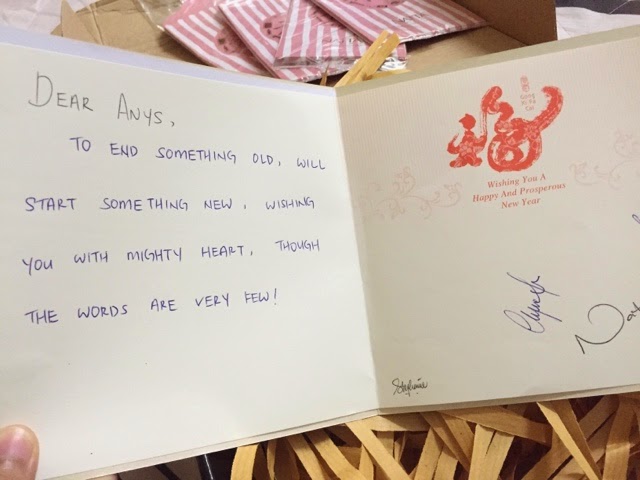 DEAR ANYS,
TO END SOMETHING OLD, WILL
START SOMETHING NEW, WISHING
YOU WITH MIGHTY HEART, THOUGH
THE WORDS ARE VERY FEW!
福
Wishing You A
Happy And Prosperous
New Year